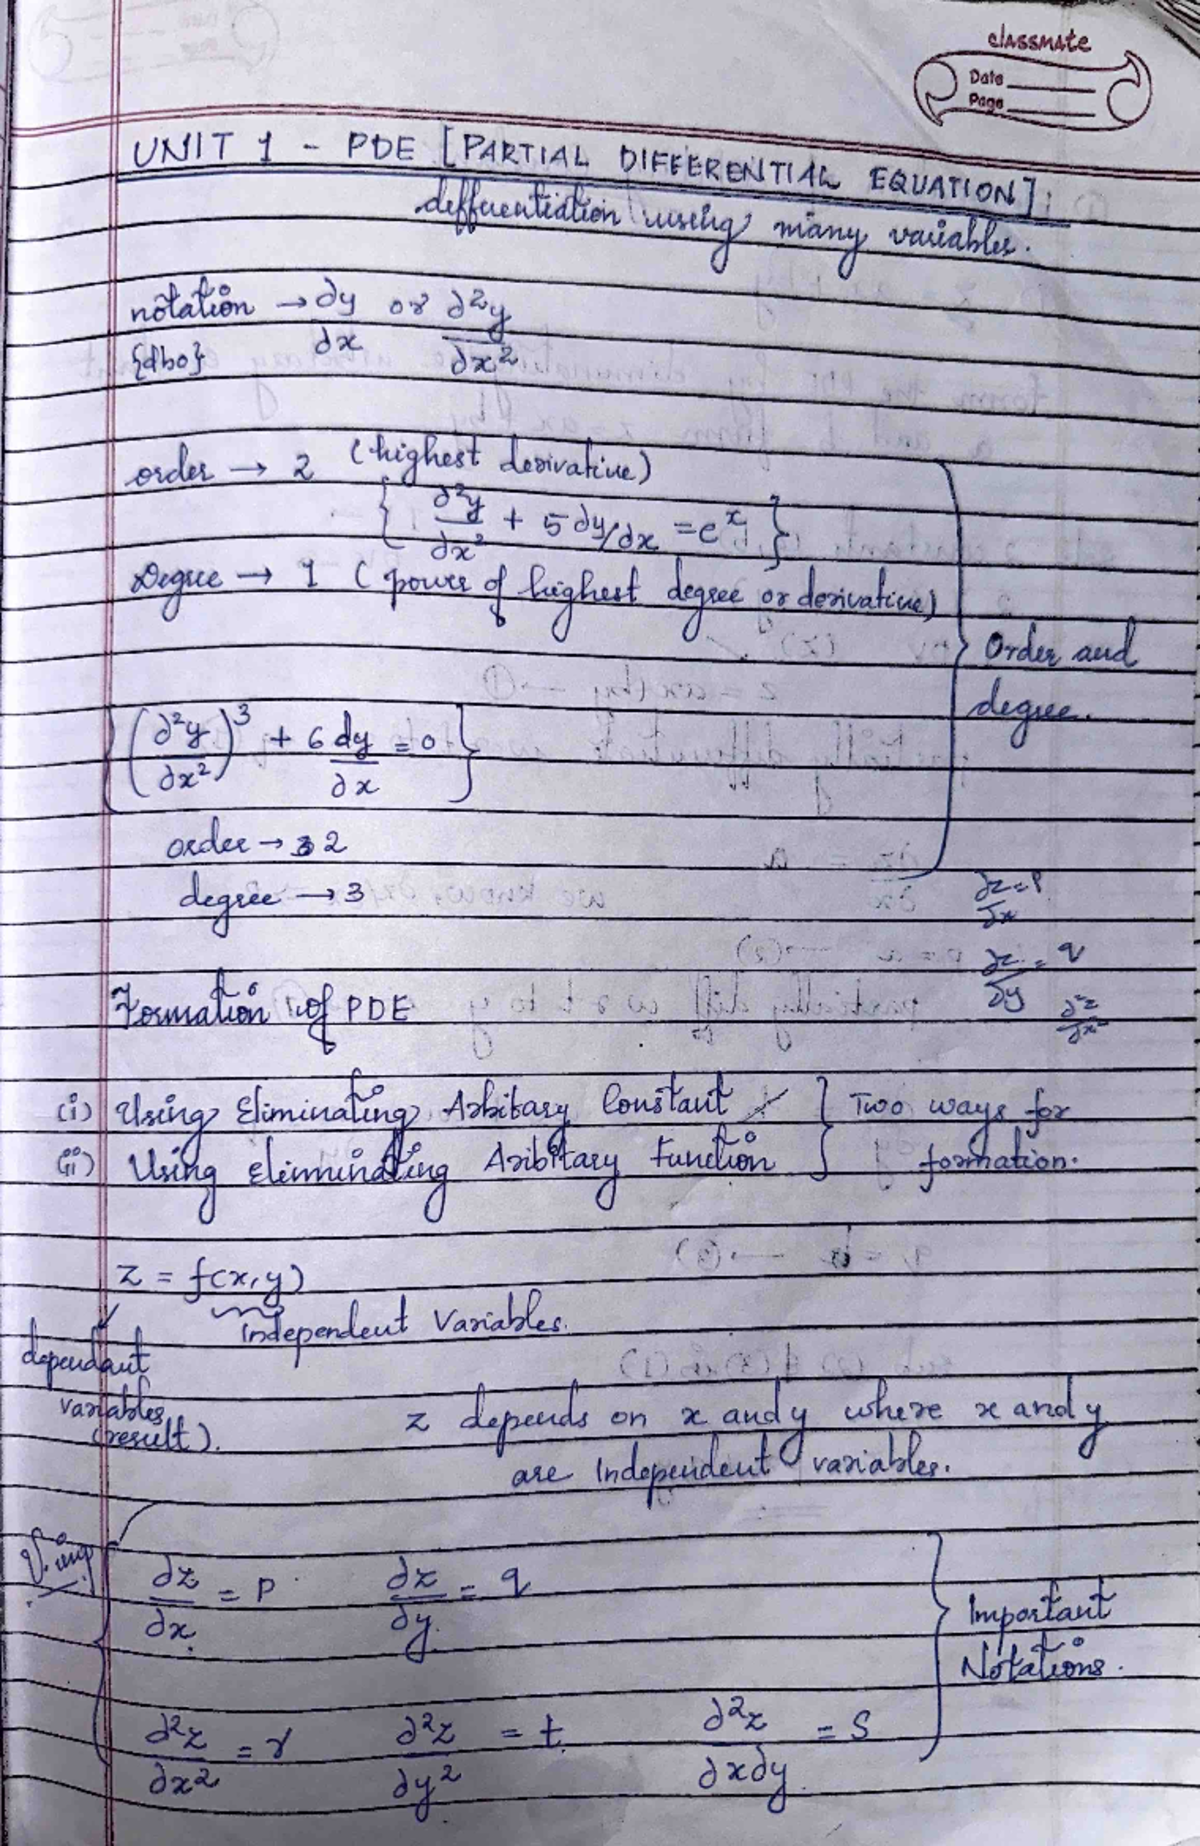 classmate
Date
Page
UNIT 1 - PDE [PARTIAL DIFFERENTIAL EQUATION]:
differentiation using many variables.
notation → ∂y/∂x or ∂²y/∂x²
{dbo}
order → 2 (highest derivative)
{ ∂²y/∂x² + 5∂y/∂x = e^x }
Degree → 1 (power of highest degree or derivative)
Order and
degree.
{ (∂²y/∂x²)³ + 6 dy/∂x = 0 }
order → 2
degree → 3
∂z/∂x = P
∂z/∂y = q
∂²z/∂x²
Formation of PDE
(i) Using Eliminating Arbitary Constant
(ii) Using eliminating Aribitary Function
Two ways for
formation.
z = f(x,y)
Independent Variables.
dependant
variables
(result).
z depends on x and y where x and y
are Independent variables.
V. imp
∂z/∂x = P ∂z/∂y = q
Important
Notations.
∂²z/∂x² = r ∂²z/∂y² = t ∂²z/∂x∂y = S